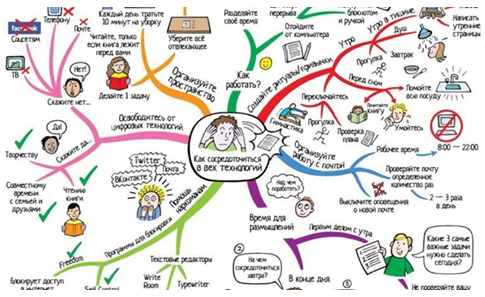 Телефону
facebook
Соцсетям
Почте
ТВ
Нет!
Скажите нет...
Каждый день тратьте
10 минут на уборку
Читайте, только
если книга лежит
перед вами
Делайте 1 задачу
Уберите всё
отвлекающее
Организуйте
пространство
Разделяйте
своё время
перерыва
Отойдите
от компьютера
блокнотом и
ручкой
Как
работать?
Создайте ритуалы/привычки
Утро
Утро
в тишине
Написать
утренние
страницы
Душ
Прогулка
Завтрак
Перед сном
Помойте
всю посуду
Почитайте
книгу
Умойтесь
Переключайтесь
Гимнастика
Прогулка
Проверка
плана
8:00 — 22:00
Освободитесь от
цифровых технологий
Да!
Скажите да...
Творчеству
Совместному
времени
с семьей и
друзьями
Чтению
книг
Как сосредоточиться
в век технологий
Организуйте
работу с почтой
Рабочее время
Проверяйте почту
определенное
количество раз
2 — 3 раза
в день
Выключите оповещения
о новой почте
Twitter
ВКонтакте
Почта
Помощь
наркоманам
Программы для блокировки
Freedom
Self Control
Блокирует доступ
в интернет
Текстовые редакторы
Write
Room
Typewriter
Над чем
поработать?
Время для
размышлений
Первым делом с утра
Какие 3 самые
важные задачи
нужно сделать
сегодня?
2
На чем
сосредоточиться
завтра?
В конце дня
3
Не проверяйте вашу